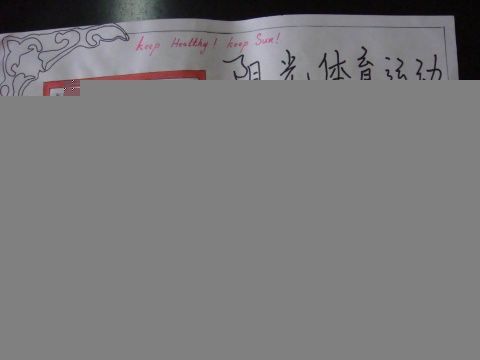 keep Healthy! keep Sun!
阳光体育运动